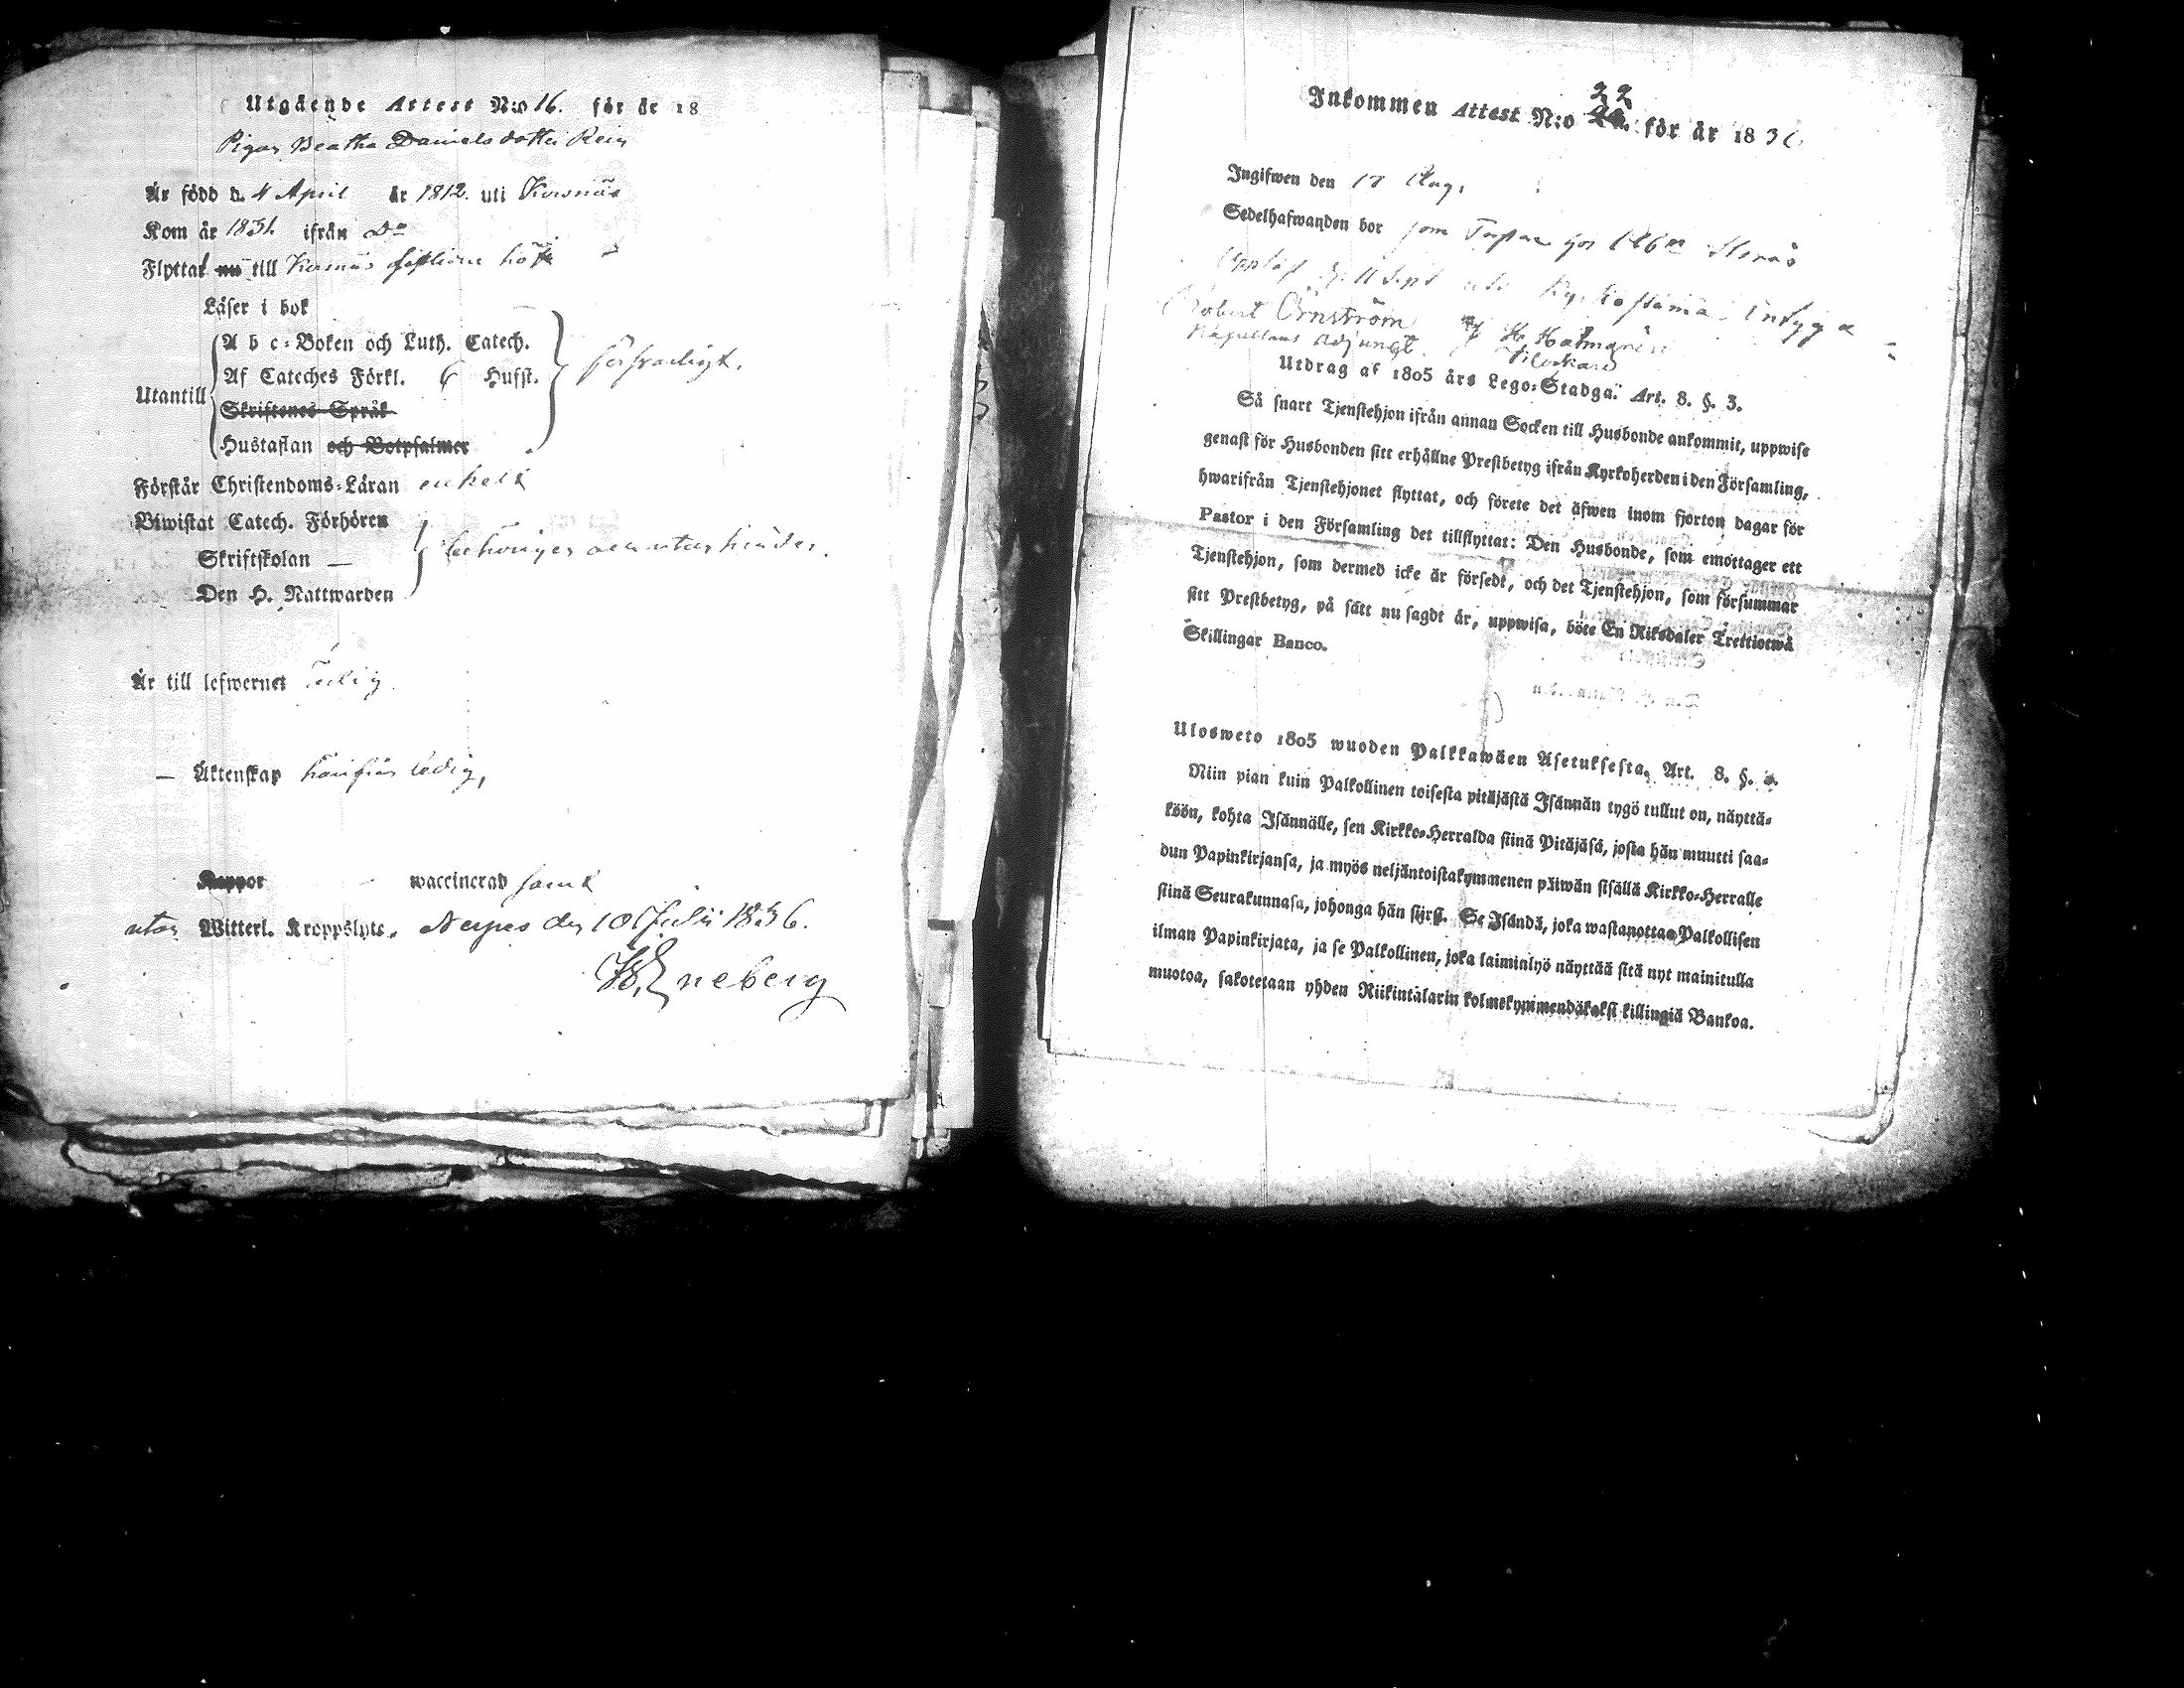 Utgående Attest N:o 16. för år 18
Pigan Beatha Danielsdotter Rein
Är född d. 4 April år 1812. uti Korsnäs
Kom år 1831. ifrån Do
Flyttat nu till Korsnäs
Läser i bok
A b c-Boken och Luth. Catech.
Af Cateches Förkl. 6 Hufst.
försvarligt.
Utantill
Skriftenes Språk
Hustaflan och Botpsalmer
Förstår Christendoms-Läran enkelt
Biwistat Catech. Förhören
Skriftskolan —
Den H. Nattwarden
hinder.
Är till lefwernet
— Äktenskap ledig,
Koppor waccinerad samt
utan Witterl. Kroppslyte. Nerpes den 10 Julii 1836.
Eneberg
Inkommen Attest N:o 22 för år 1836
Ingifwen den 17 Aug.
Sedelhafwanden bor som
11 Sept
Robert Örnström
Kapellans adjunct.
Utdrag af 1805 års Lego-Stadga. Art. 8. §. 3.
Så snart Tjenstehjon ifrån annan Socken till Husbonde ankommit, uppwise
genast för Husbonden sitt erhållne Prestbetyg ifrån Kyrkoherden i den Församling,
hwarifrån Tjenstehjonet flyttat, och förete det äfwen inom fjorton dagar för
Pastor i den Församling det tillflyttat: Den Husbonde, som emottager ett
Tjenstehjon, som dermed icke är försedt, och det Tjenstehjon, som försummar
sitt Prestbetyg, på sätt nu sagdt är, uppwisa, böte En Riksdaler Trettiotwå
Skillingar Banco.
Ulosweto 1805 wuoden Palkkawäen Asetuksesta, Art. 8. §.
Niin pian kuin Palkollinen toisesta pitäjästä Isännän tygö tullut on, näyttä-
köön, kohta Isännälle, sen Kirkko-Herralda siinä Pitäjäsä, josta hän muutti saa-
dun Papinkirjansa, ja myös neljäntoistakymmenen päiwän sisällä Kirkko-Herralle
siinä Seurakunnasa, johonga hän siirst. Se Isändä, joka wastanottaa Palkollisen
ilman Papinkirjata, ja se Palkollinen, joka laiminlyö näyttää sitä nyt mainitulla
muotoa, sakotetaan yhden Riikintalarin kolmekymmendäkaksi killingiä Bankoa.